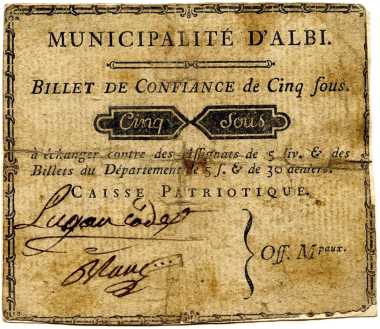 MUNICIPALITÉ D'ALBI.
BILLET DE CONFIANCE de Cinq ſous.
Cinq Sous
à échanger contre des Aſſignats de 5 liv. & des
Billets du Département de 5 ſ. & de 30 deniers.
CAISSE PATRIOTIQUE.
Off. Mpaux.